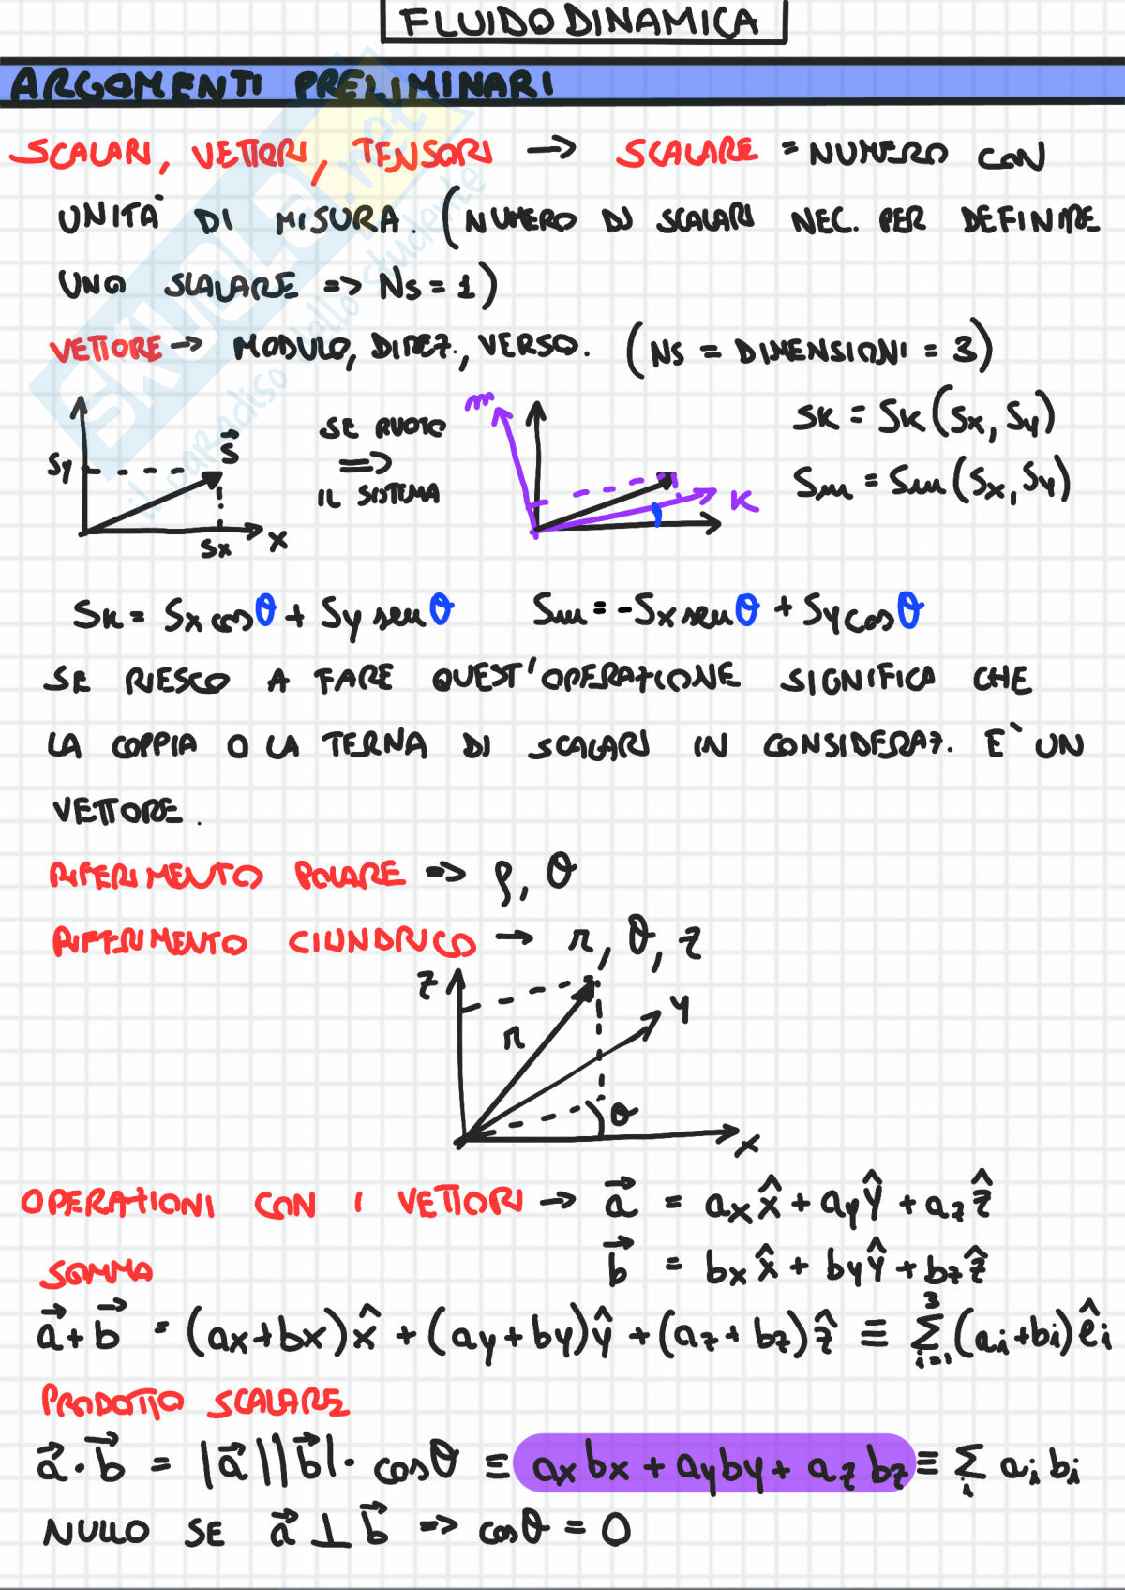 FLUIDODINAMICA
ARGOMENTI PRELIMINARI
SCALARI, VETTORI, TENSORI → SCALARE = NUMERO CON
UNITA' DI MISURA. (NUMERO DI SCALARI NEC. PER DEFINIRE
UNO SCALARE => Ns = 1)
VETTORE → MODULO, DIREZ., VERSO. (Ns = DIMENSIONI = 3)
Sy S⃗ Sx x
SE RUOTO
=>
IL SISTEMA
m K
SK = SK (Sx, Sy)
Sm = Sm (Sx, Sy)
SK = Sx cosθ + Sy senθ Sm = -Sx senθ + Sy cosθ
SE RIESCO A FARE QUEST'OPERAZIONE SIGNIFICA CHE
LA COPPIA O LA TERNA DI SCALARI IN CONSIDERAZ. E` UN
VETTORE.
RIFERIMENTO POLARE => ρ, θ
RIFERIMENTO CILINDRICO → r, θ, z
z r y θ x
OPERAZIONI CON I VETTORI → a⃗ = ax x̂ + ay ŷ + az ẑ
b⃗ = bx x̂ + by ŷ + bz ẑ
SOMMA
a⃗ + b⃗ = (ax+bx) x̂ + (ay+by) ŷ + (az+bz) ẑ ≡ Σ³i=1 (ai+bi) êi
PRODOTTO SCALARE
a⃗ · b⃗ = |a⃗||b⃗| · cosθ ≡ ax bx + ay by + az bz ≡ Σi ai bi
NULLO SE a⃗ ⊥ b⃗ => cosθ = 0
SKUOLA.net
il paradiso dello studente